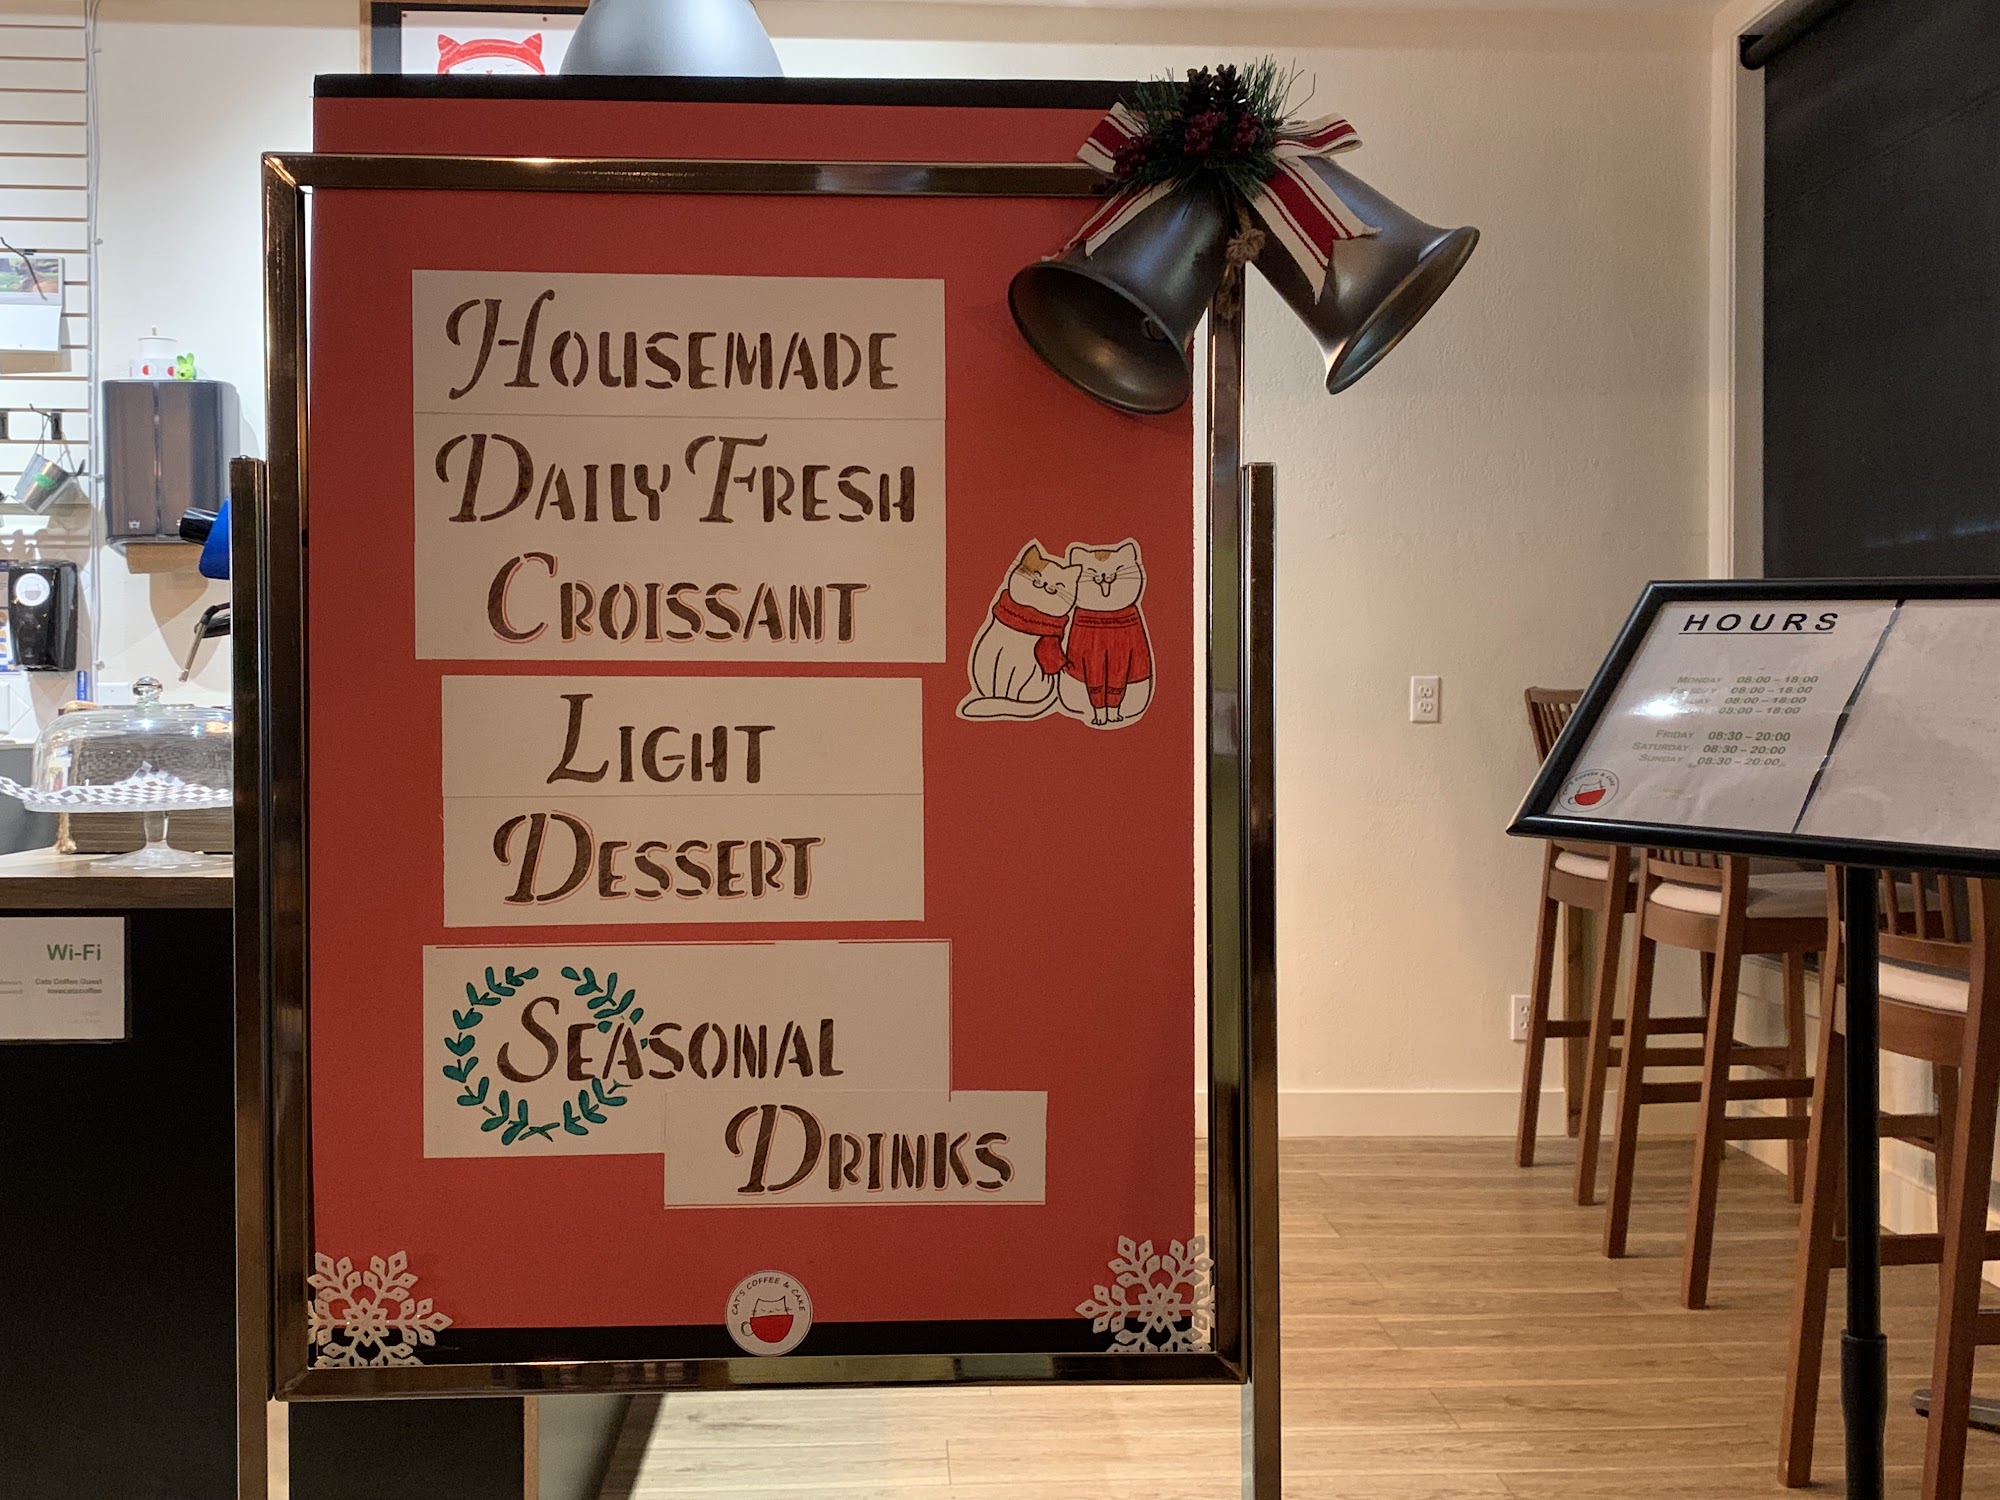 HOUSEMADE
DAILY FRESH
CROISSANT
LIGHT
DESSERT
SEASONAL
DRINKS
CAT'S COFFEE & CAKE
HOURS
MONDAY 08:00 – 18:00
TUESDAY 08:00 – 18:00
08:00 – 18:00
08:00 – 18:00
FRIDAY 08:30 – 20:00
SATURDAY 08:30 – 20:00
SUNDAY 08:30 – 20:00
CAT'S COFFEE & CAKE
Wi-Fi
Cats Coffee Guest
lovecatscoffee